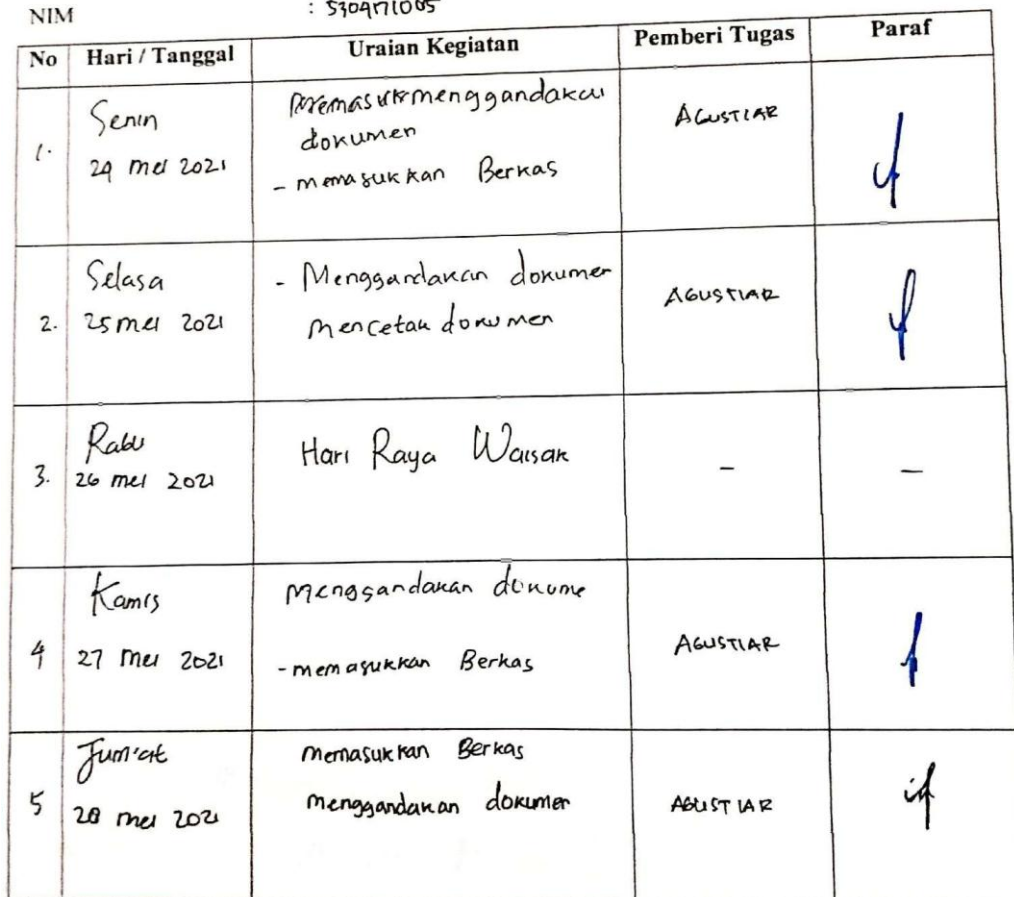 NIM : 5304171005
No Hari / Tanggal Uraian Kegiatan Pemberi Tugas Paraf
1. Senin 24 mei 2021 menggandakan
dokumen
- memasukkan Berkas AGUSTIAR
2. Selasa 25 mei 2021 - Menggandakan dokumen
mencetak dokumen AGUSTIAR
3. Rabu 26 mei 2021 Hari Raya Waisak - -
4 Kamis 27 mei 2021 menggandakan dokume
- memasukkan Berkas AGUSTIAR
5 Jum'at 28 mei 2021 memasukkan Berkas
menggandakan dokumen AGUSTIAR